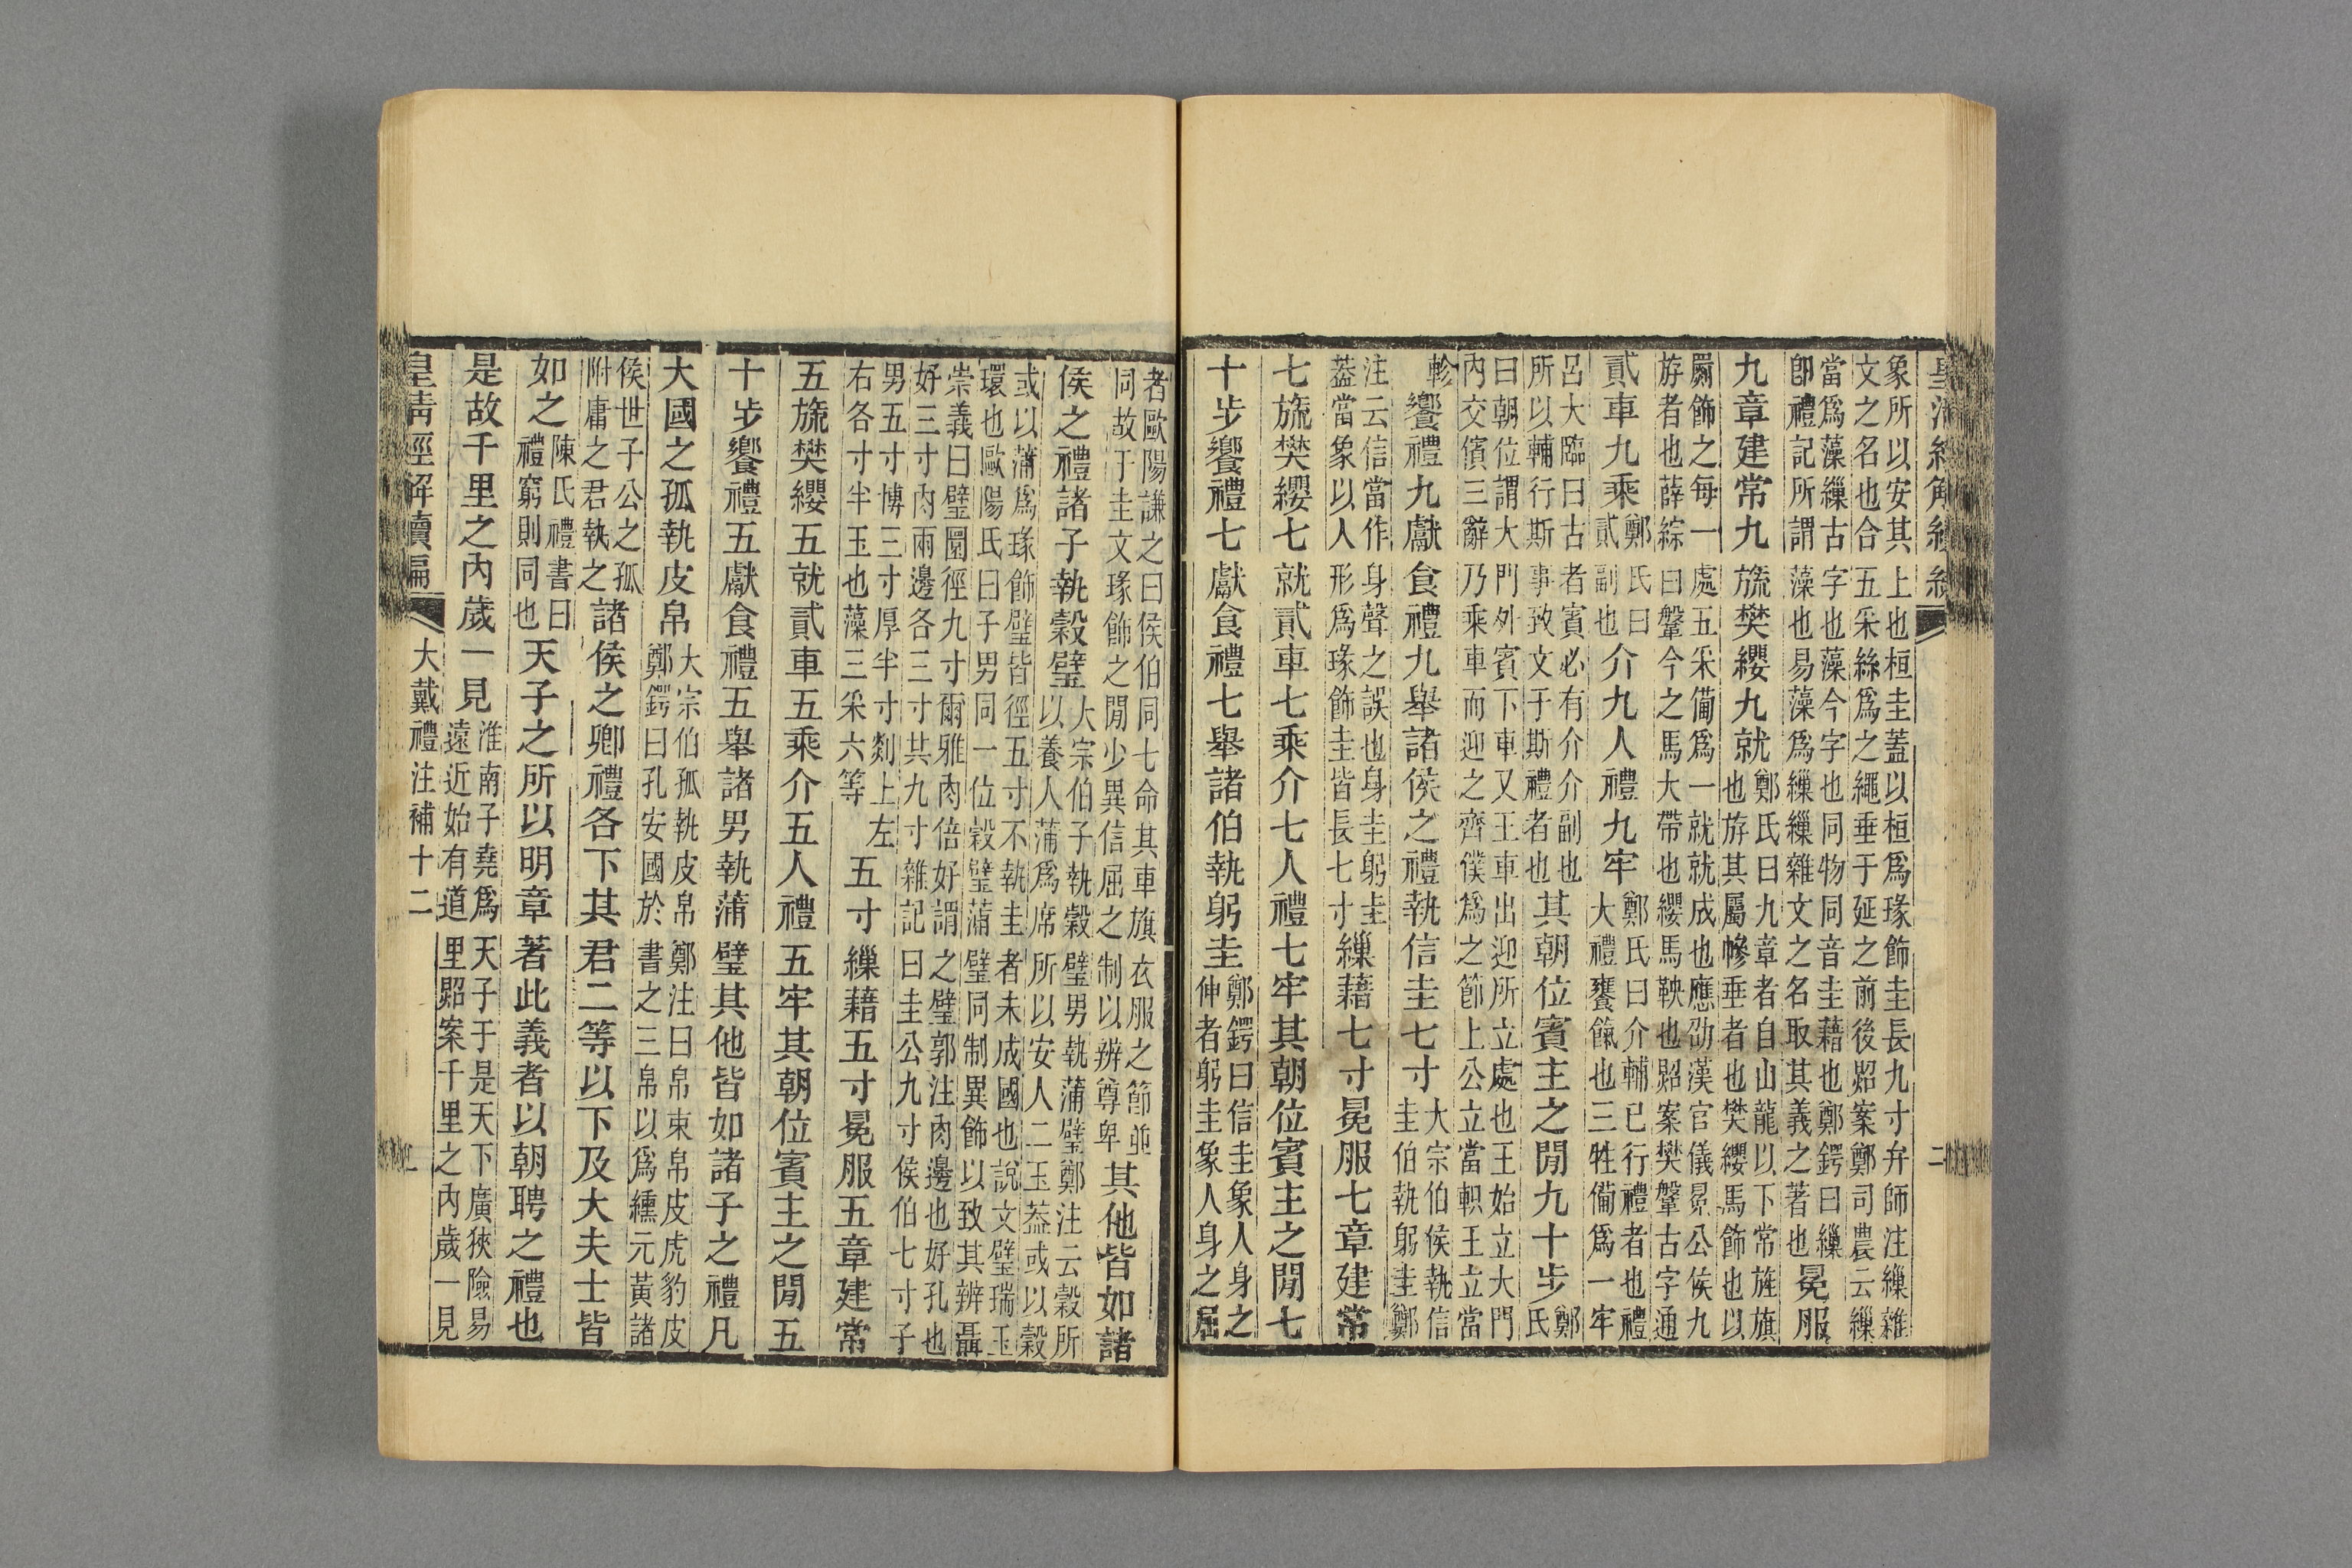 象所以安其上也桓圭蓋以桓爲瑑飾圭長九寸弁師注繅雜
文之名也合五采絲爲之繩垂于延之前後照案鄭司農云繅
當爲藻繅古字也藻今字也同物同音圭藉也鄭鍔曰繅
卽禮記所謂藻也易藻爲繅繅雜文之名取其義之著也
冕服
九章建常九旒樊纓九就
鄭氏曰九章者自山龍以下常旌旗
也斿其屬幓垂者也樊纓馬飾也以
罽飾之每一處五采備爲一就就成也應劭漢官儀冕公侯九
斿者也薛綜曰鞶今之馬大帶也纓馬鞅也照案樊鞶古字通
貳車九乘
鄭氏曰
貳副也
介九人禮九牢
鄭氏曰介輔已行禮者也禮
大禮饔餼也三牲備爲一牢
呂大臨曰古者賓必有介介副也
所以輔行斯事致文于斯禮者也
其朝位賓主之閒九十步
鄭
氏
曰朝位謂大門外賓下車又王車出迎所立處也王始立大門
內交儐三辭乃乘車而迎之齊僕爲之節上公立當軹王立當
軫
饗禮九獻食禮九舉諸侯之禮執信圭七寸
大宗伯侯執信
圭伯執躬圭鄭
注云信當作身聲之誤也身圭躬圭
蓋當象以人形爲瑑飾圭皆長七寸
繅藉七寸冕服七章建常
七旒樊纓七就貳車七乘介七人禮七牢其朝位賓主之閒七
十步饗禮七獻食禮七舉諸伯執躬圭
鄭鍔曰信圭象人身之
伸者躬圭象人身之屈
者歐陽謙之曰侯伯同七命其車旗衣服之節並
同故于圭文瑑飾之閒少異信屈之制以辨尊卑
其他皆如諸
侯之禮諸子執穀璧
大宗伯子執穀璧男執蒲璧鄭注云穀所
以養人蒲爲席所以安人二玉蓋或以穀
或以蒲爲瑑飾璧皆徑五寸不執圭者未成國也說文璧瑞玉
環也歐陽氏曰子男同一位穀璧蒲璧同制異飾以致其辨聶
崇義曰璧圜徑九寸爾雅肉倍好謂之璧郭注肉邊也好孔也
好三寸肉兩邊各三寸共九寸雜記曰圭公九寸侯伯七寸子
男五寸博三寸厚半寸剡上左
右各寸半玉也藻三采六等
五寸繅藉五寸冕服五章建常
五旒樊纓五就貳車五乘介五人禮五牢其朝位賓主之閒五
十步饗禮五獻食禮五舉諸男執蒲璧其他皆如諸子之禮凡
大國之孤執皮帛
大宗伯孤執皮帛鄭注曰帛束帛皮虎豹皮
鄭鍔曰孔安國於書之三帛以爲纁元黃諸
侯世子公之孤
附庸之君執之
諸侯之卿禮各下其君二等以下及大夫士皆
如之
陳氏禮書曰
禮窮則同也
天子之所以明章著此義者以朝聘之禮也
是故千里之內歲一見
淮南子堯爲天子于是天下廣狹險易
遠近始有道里照案千里之內歲一見
皇清經解續編
大戴禮注補十二